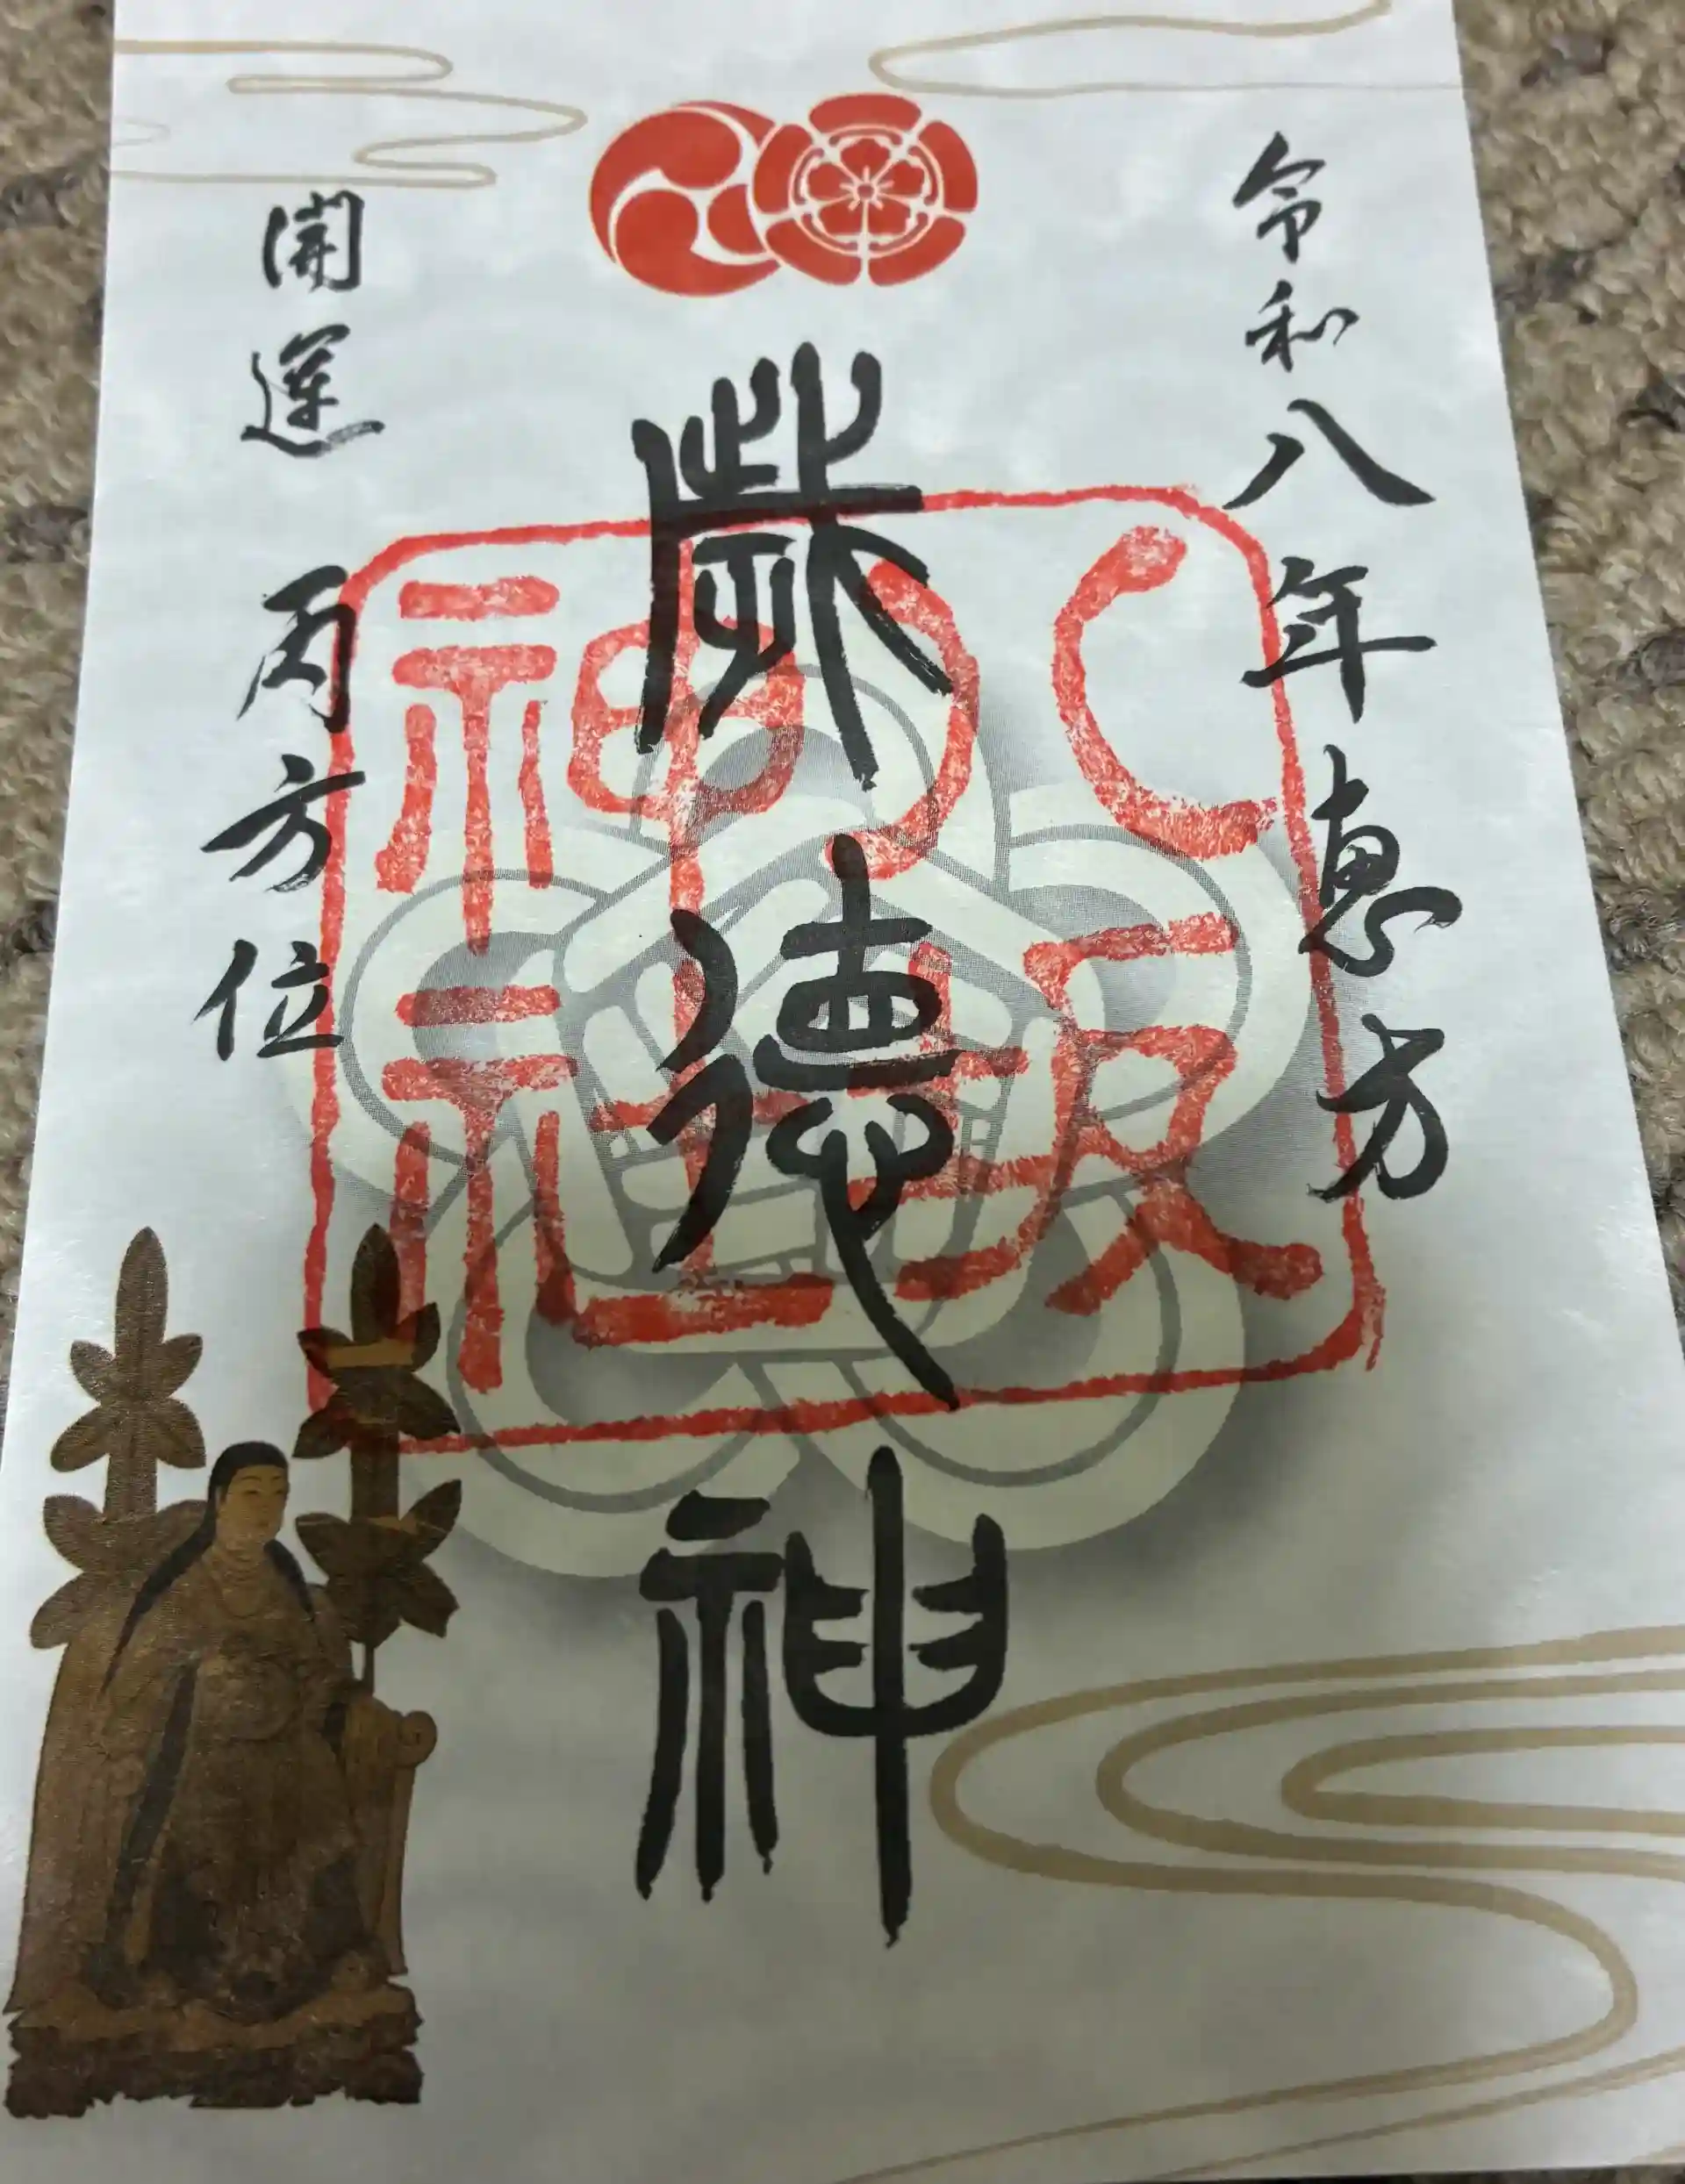 令和八年恵方
歳徳神
開運 丙方位
八坂
神社